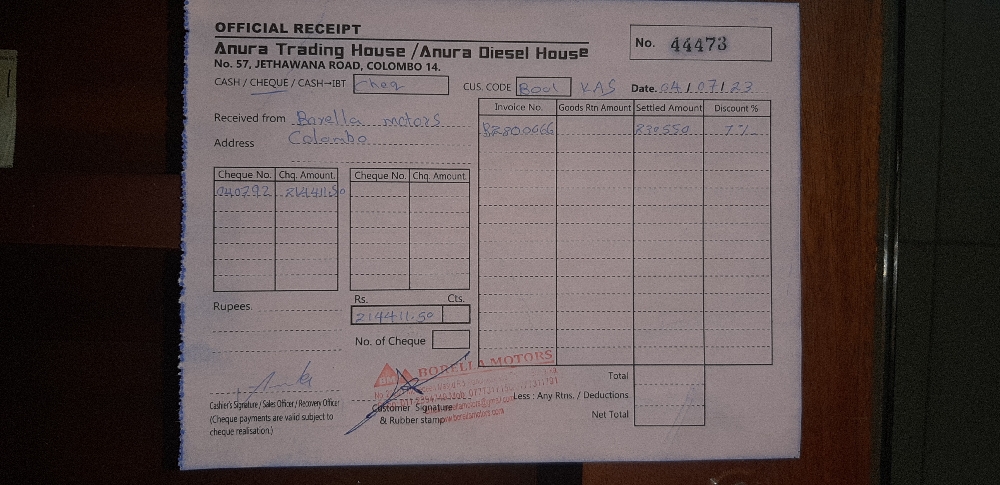 OFFICIAL RECEIPT
Anura Trading House /Anura Diesel House
No. 57, JETHAWANA ROAD, COLOMBO 14.
No. 44473
CASH / CHEQUE / CASH→IBT Cheq
CUS. CODE Bool KAS
Date. 04/07/23
Received from Borella motors
Address Colombo
Invoice No. Goods Rtn Amount Settled Amount Discount %
230550 7%
Cheque No. Chq. Amount. Cheque No. Chq. Amount
040792 214411.50
Rupees.
Rs. Cts.
214411.50
No. of Cheque
BORELLA MOTORS
Total
Less : Any Rtns. / Deductions
Net Total
Cashier's Signature / Sales Officer / Recovery Officer
(Cheque payments are valid subject to
cheque realisation.)
Customer Signature
& Rubber stamp